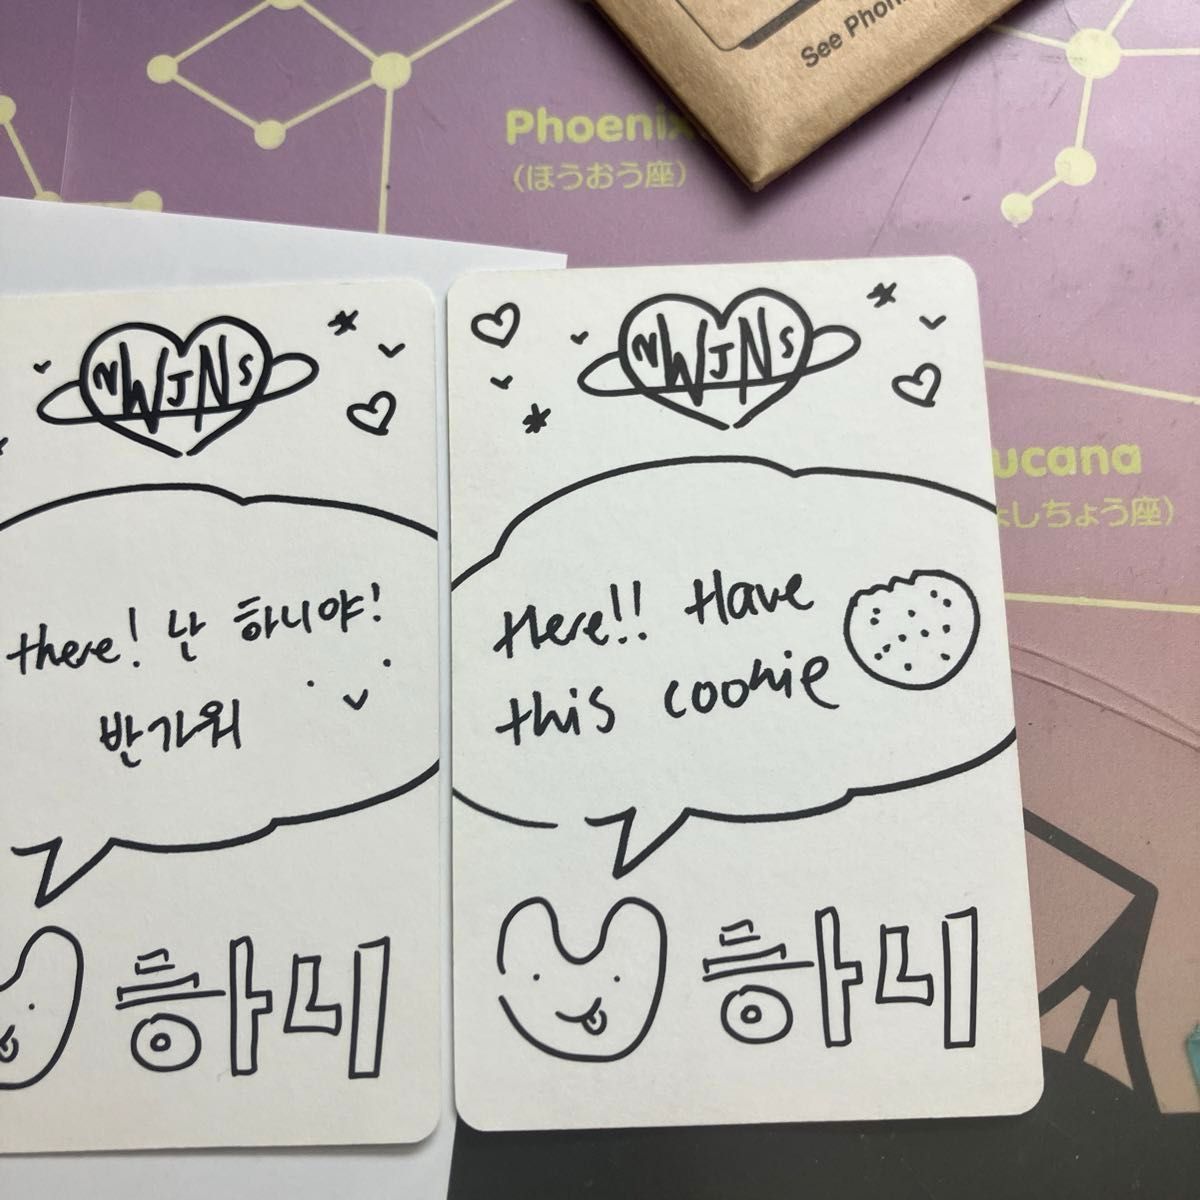 See Phon
Phoenix
(ほうおう座)
ucana
ょしちょう座)
NWJNS
there! 난 하니야!
반가워
하니
NWJNS
Here!! Have
this cookie
하니